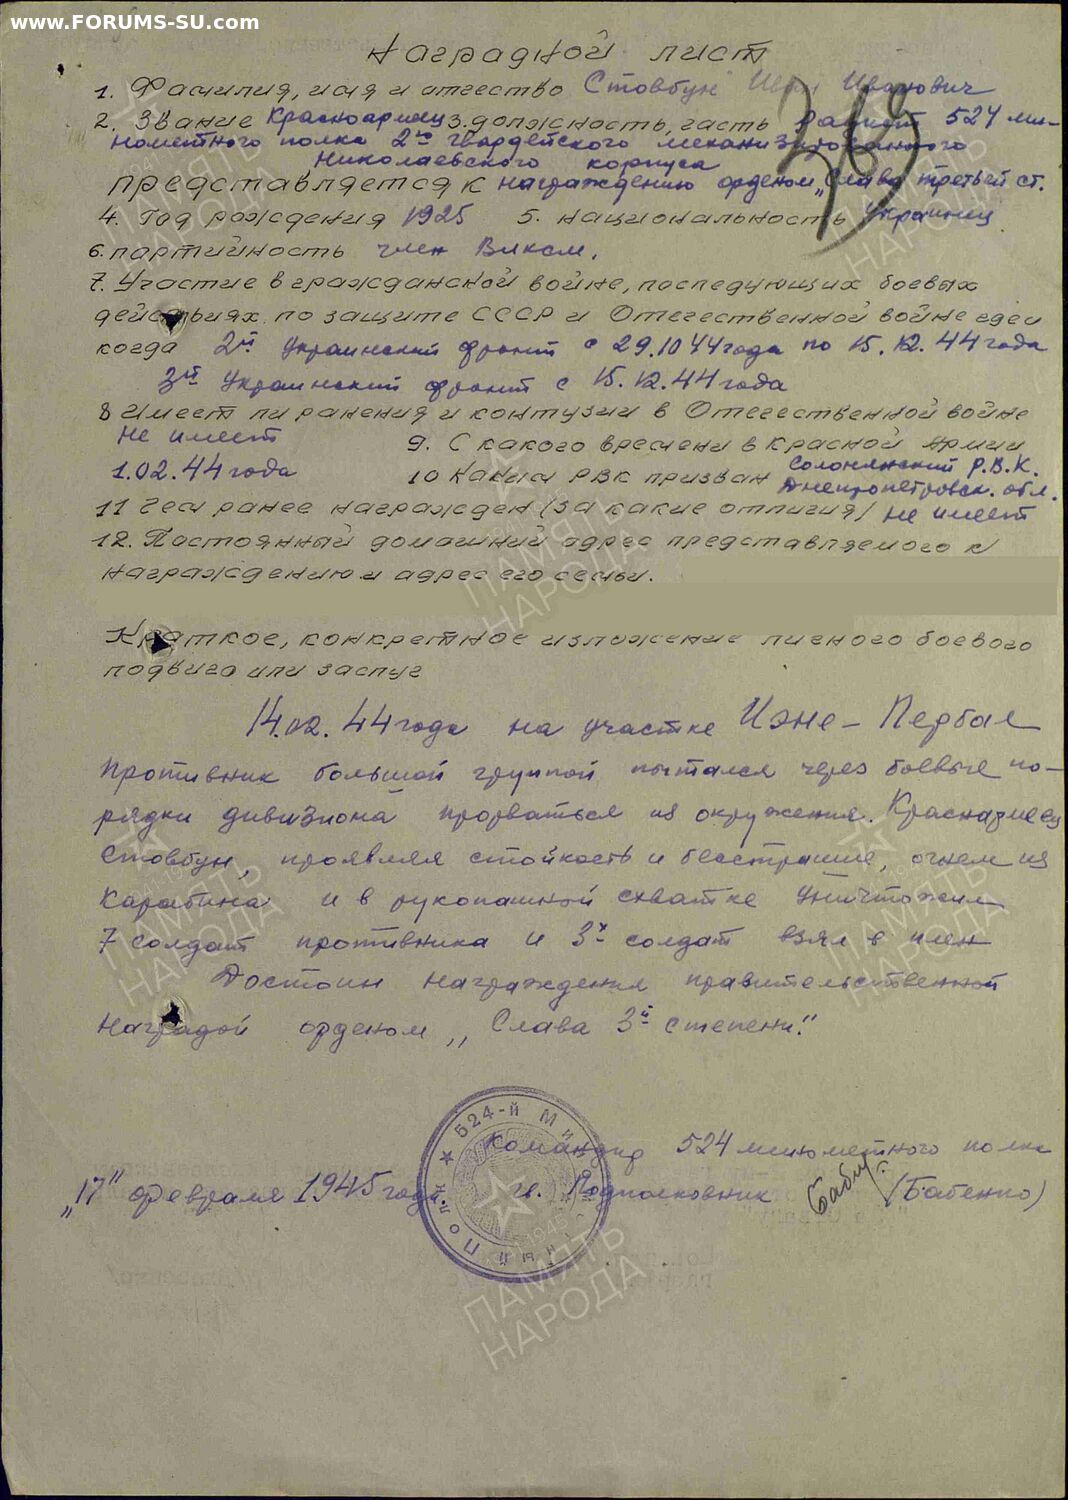 www.FORUMS-SU.com
Наградной лист
1. Фамилия, имя и отчество Стовбун Иван Иванович
2. Звание Красноармеец 3. должность, часть радист 524 ми-
нометного полка 2го гвардейского механизированного
Николаевского корпуса
представляется к награждению орденом „Слава третьей ст.
4. Год рождения 1925 5. национальность Украинец
6. партийность член Влксм.
7. Участие в гражданской войне, последующих боевых
действиях по защите СССР и Отечественной войне где и
когда 2й Украинский фронт с 29.10 44 года по 15.12.44 года
3й Украинский фронт с 15.12.44 года
8 Имеет ли ранения и контузии в Отечественной войне
не имеет 9. С какого времени в Красной Армии
1.02.44 года 10 Каким РВК призван Солонянский Р.В.К.
Днепропетровск. обл.
11 Чем ранее награжден (за какие отличия) не имеет
12. Постоянный домашний адрес представляемого к
награждению и адрес его семьи.
Краткое, конкретное изложение личного боевого
подвига или заслуг
14.02.44 года на участке Изне - Пербал
Противник большой группой пытался через боевые по-
рядки дивизиона прорваться из окружения. Красноармеец
Стовбун, проявляя стойкость и бесстрашие, огнем из
карабина и в рукопашной схватке уничтожил
7 солдат противника и 3х солдат взял в плен
Достоин награждения правительственной
наградой орденом „Слава 3й степени."
★ 524-й Минометный полк
Командир 524 минометного полка
„17" февраля 1945 года. гв. Подполковник (Бабенко)
369
ПАМЯТЬ НАРОДА